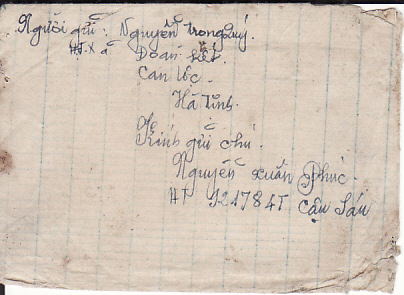 Người gửi: Nguyễn trong Quý.
HT.X ã Đoàn kết.
Can lộc.
Hà Tĩnh.
Kính gửi chú.
Nguyễn xuân Phúc.
HT 721784T